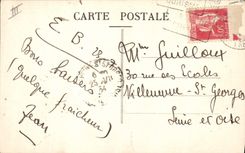 CARTE POSTALE
E. B.
Bons baisers
(quelque fraicheur)
Jean
Mme Guilloux
30 rue des Ecoles
Villeneuve-St Georges
Seine et Oise